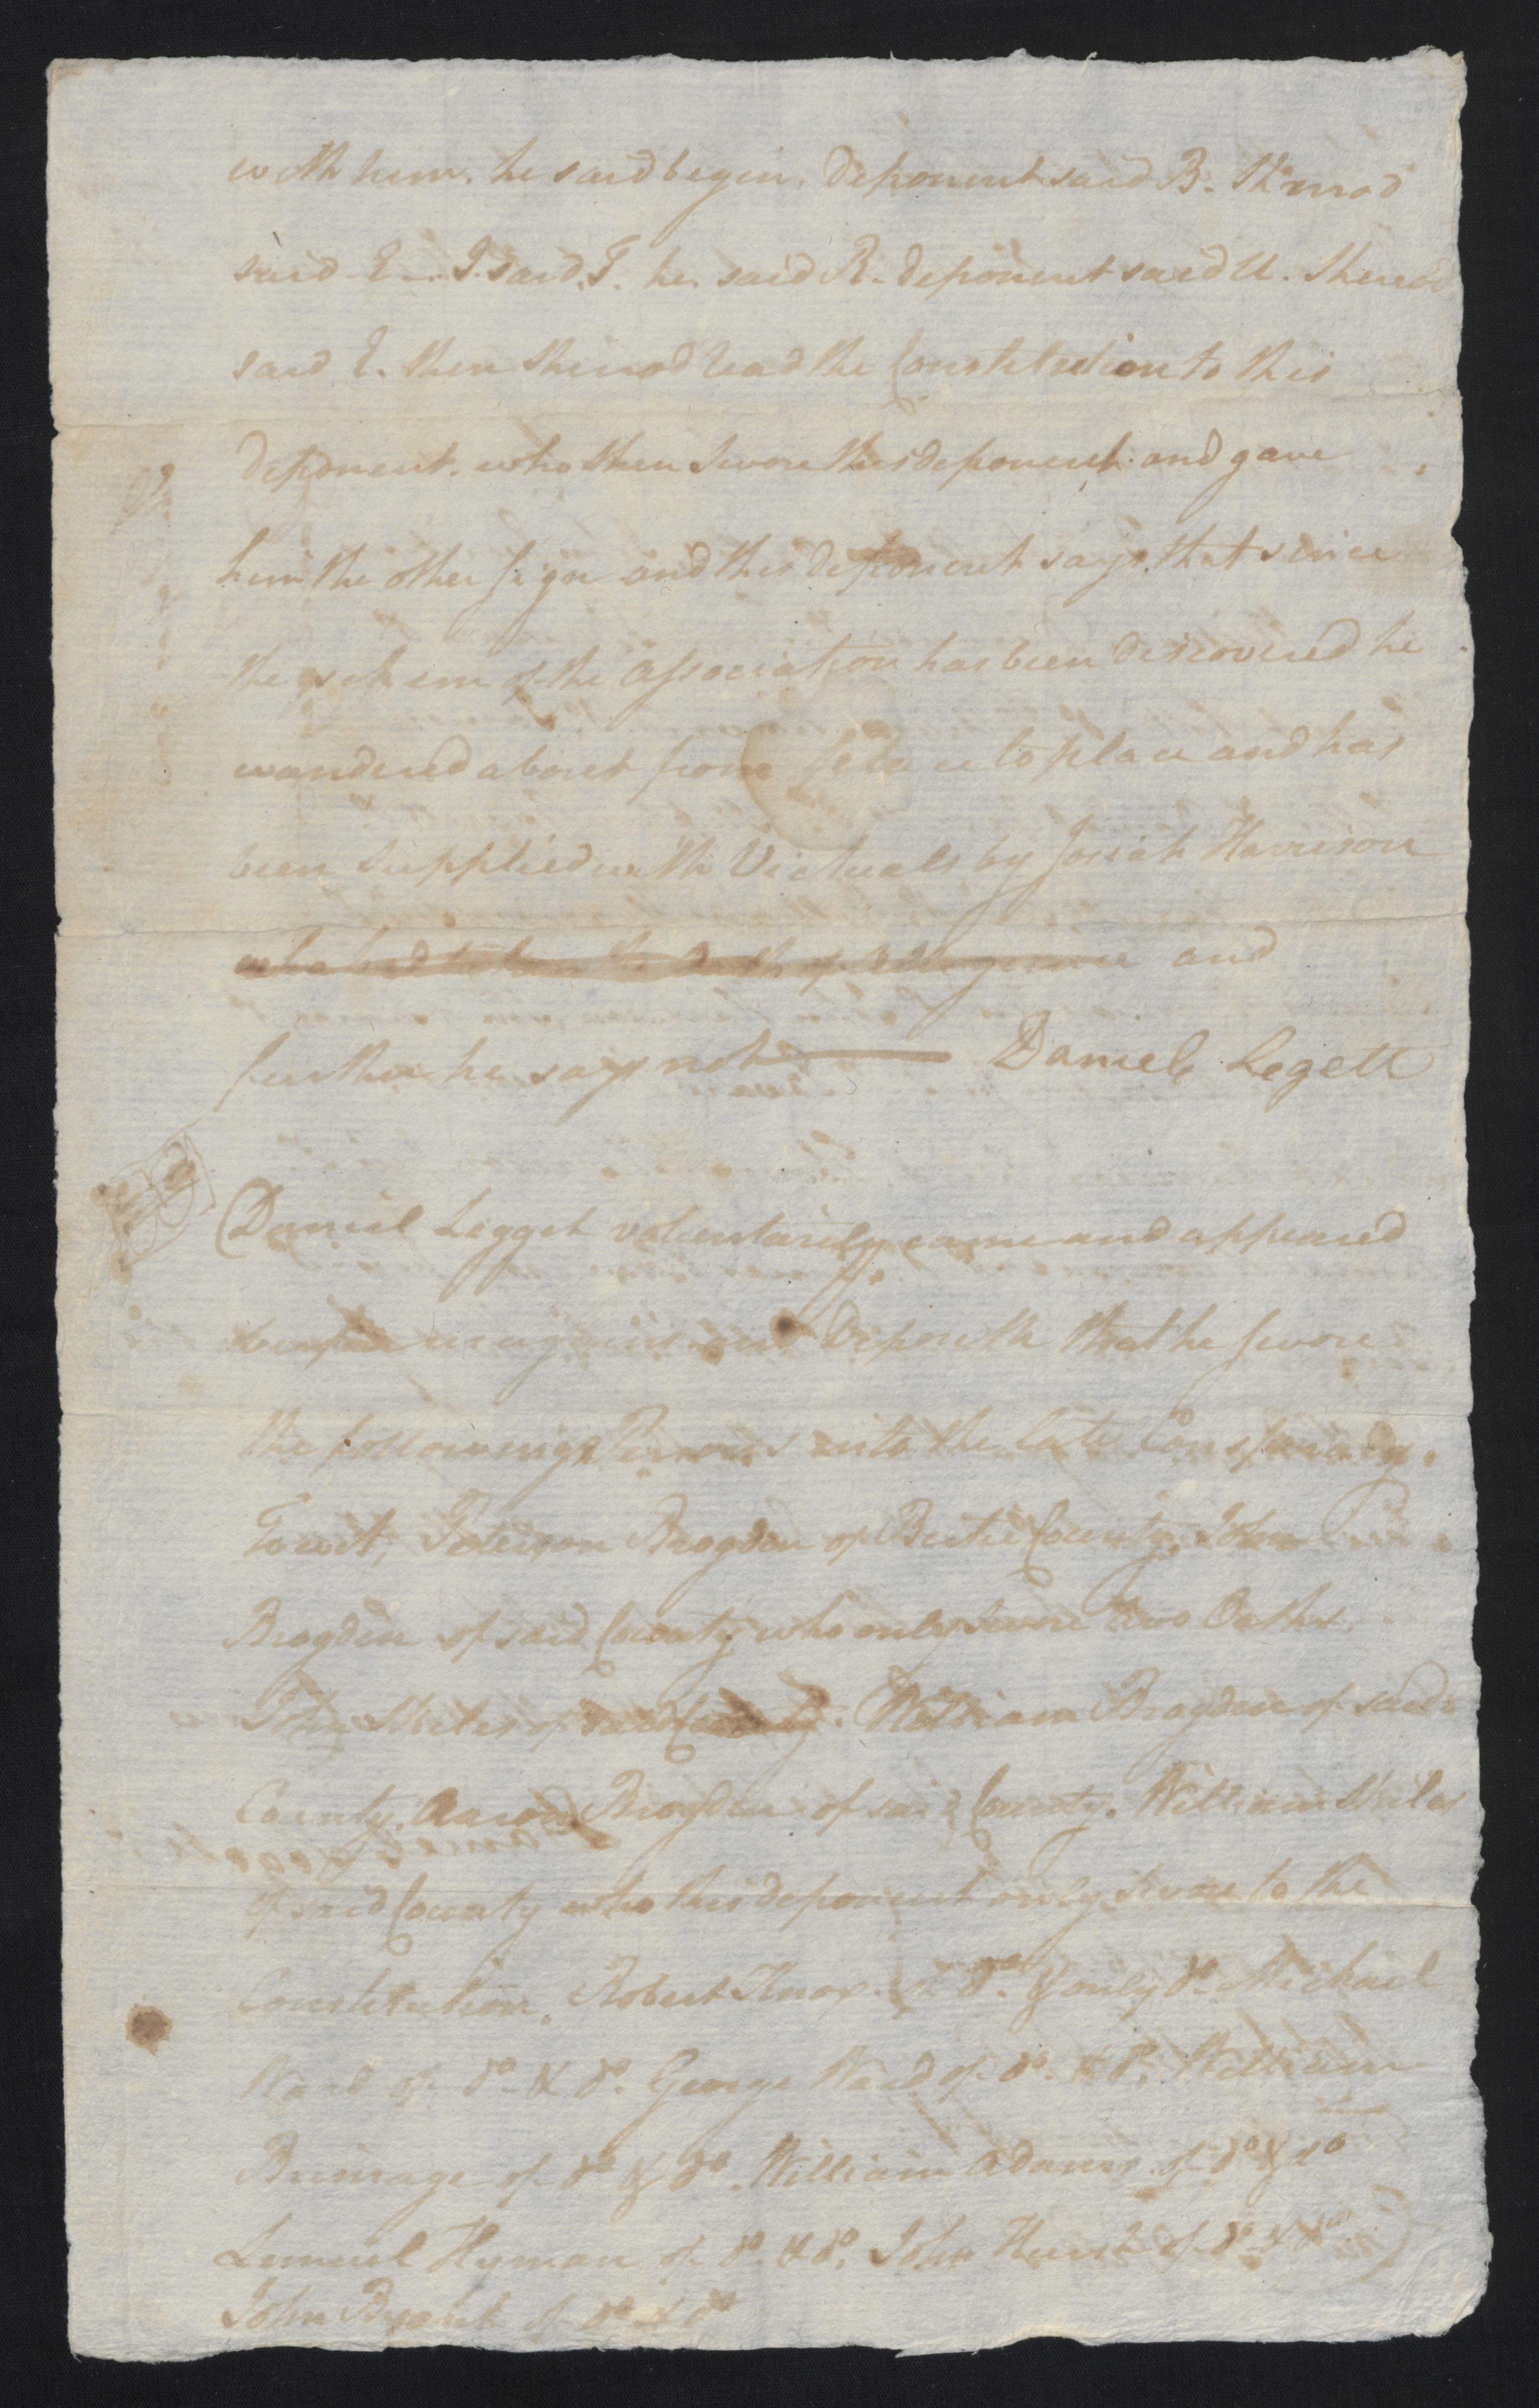 with him. he said begin, Deponent said B. Sherrod
said E. I said. T. he said R. deponent said U. Sherrod
said E. then Sherrod read the Constitution to this
deponent. who then Swore this deponent. and gave
him the other sign and this deponent says that since
the schem of the association has been discovered he
wandered about from place to place and has
been Supplied with Victuals by Josiah Harrison
who had taken the Oath of Allegiance and
further he says not Daniel Legett
Daniel Legget voluntarily came and appeared
before Deposeth that he Swore
the following Persons into the late Conspiracy.
Towit, Brogden of Bertie County, John
Brogden of said County who only swore two Oaths.
John Stiles of said County. William Brogden of said
County. Aaron Brogden of said County. William Stiles
of said County who this deponent only Swore to the
Constitution. Robert Knox. of do. & only do. Michael
Ward of do. & do. George Ward of do. & do. William
Brimage of do & do. William Adams of do & do
Lemuel Hyman of do. & do. John Hurst of do & do.
John Bryant of do & do